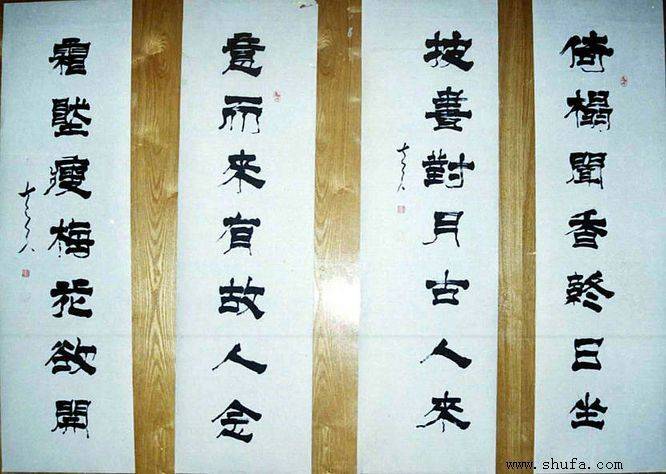 倚榻聞香終日坐
披書對月古人來
意来有故人念
霜瘦梅花欲開
www.shufa.com